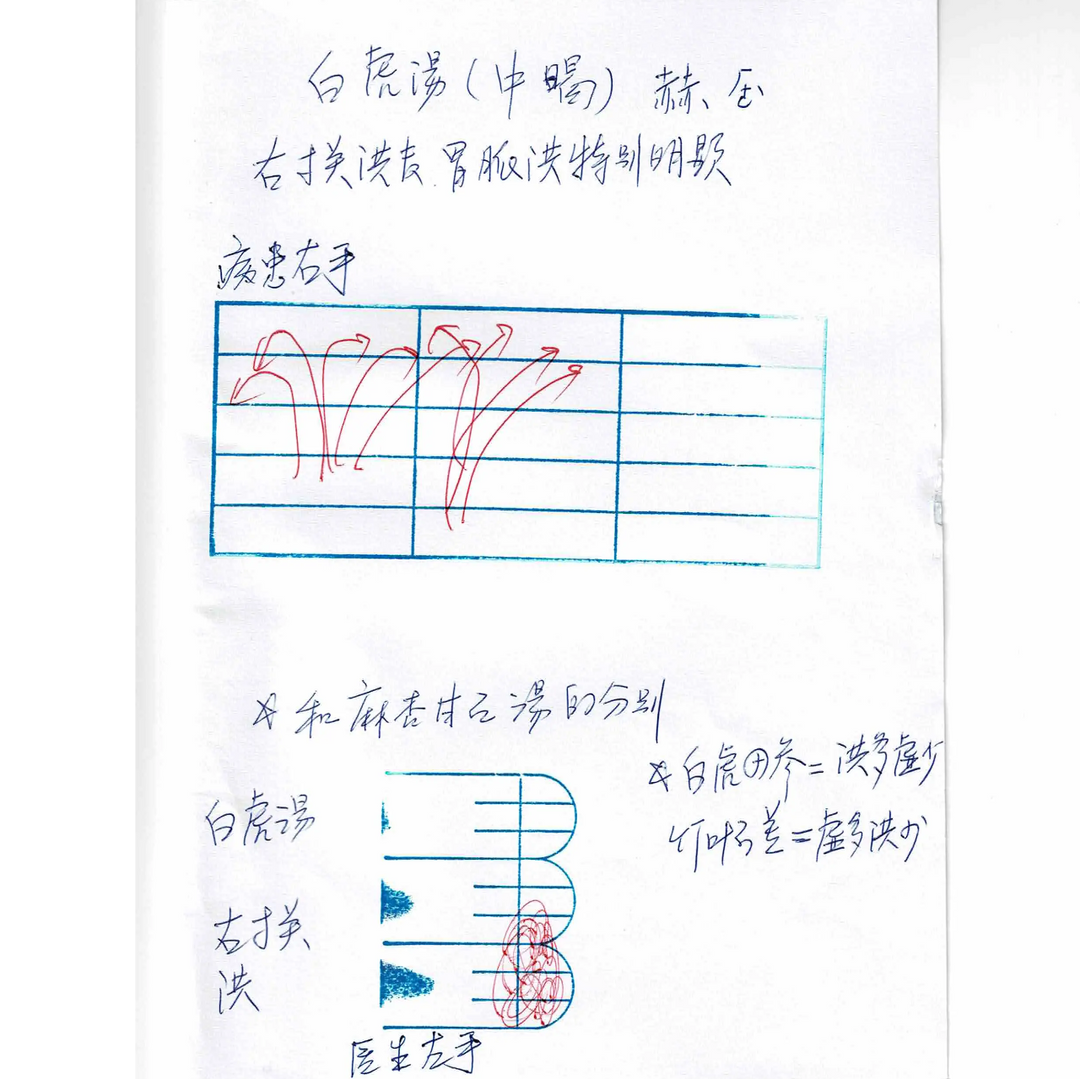 白虎湯(中暍)赫、
右寸关洪大胃脈洪特别明顯
病患右手
☆和麻杏甘石湯的分别
☆白虎⊕参=洪多虚少
竹叶石羔=虚多洪少
白虎湯
右寸关
洪
医生左手